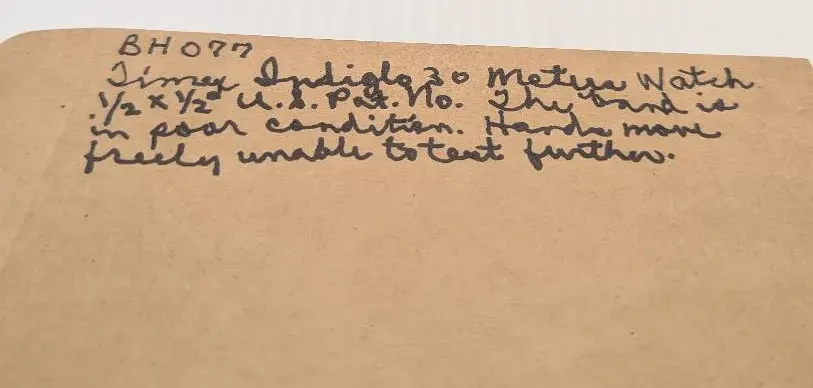 BH077
Timex Indiglo 30 Meters Watch
1/2 x 1/2" U.S. Pat. No. The band is
in poor condition. Hands move
freely unable to test further.